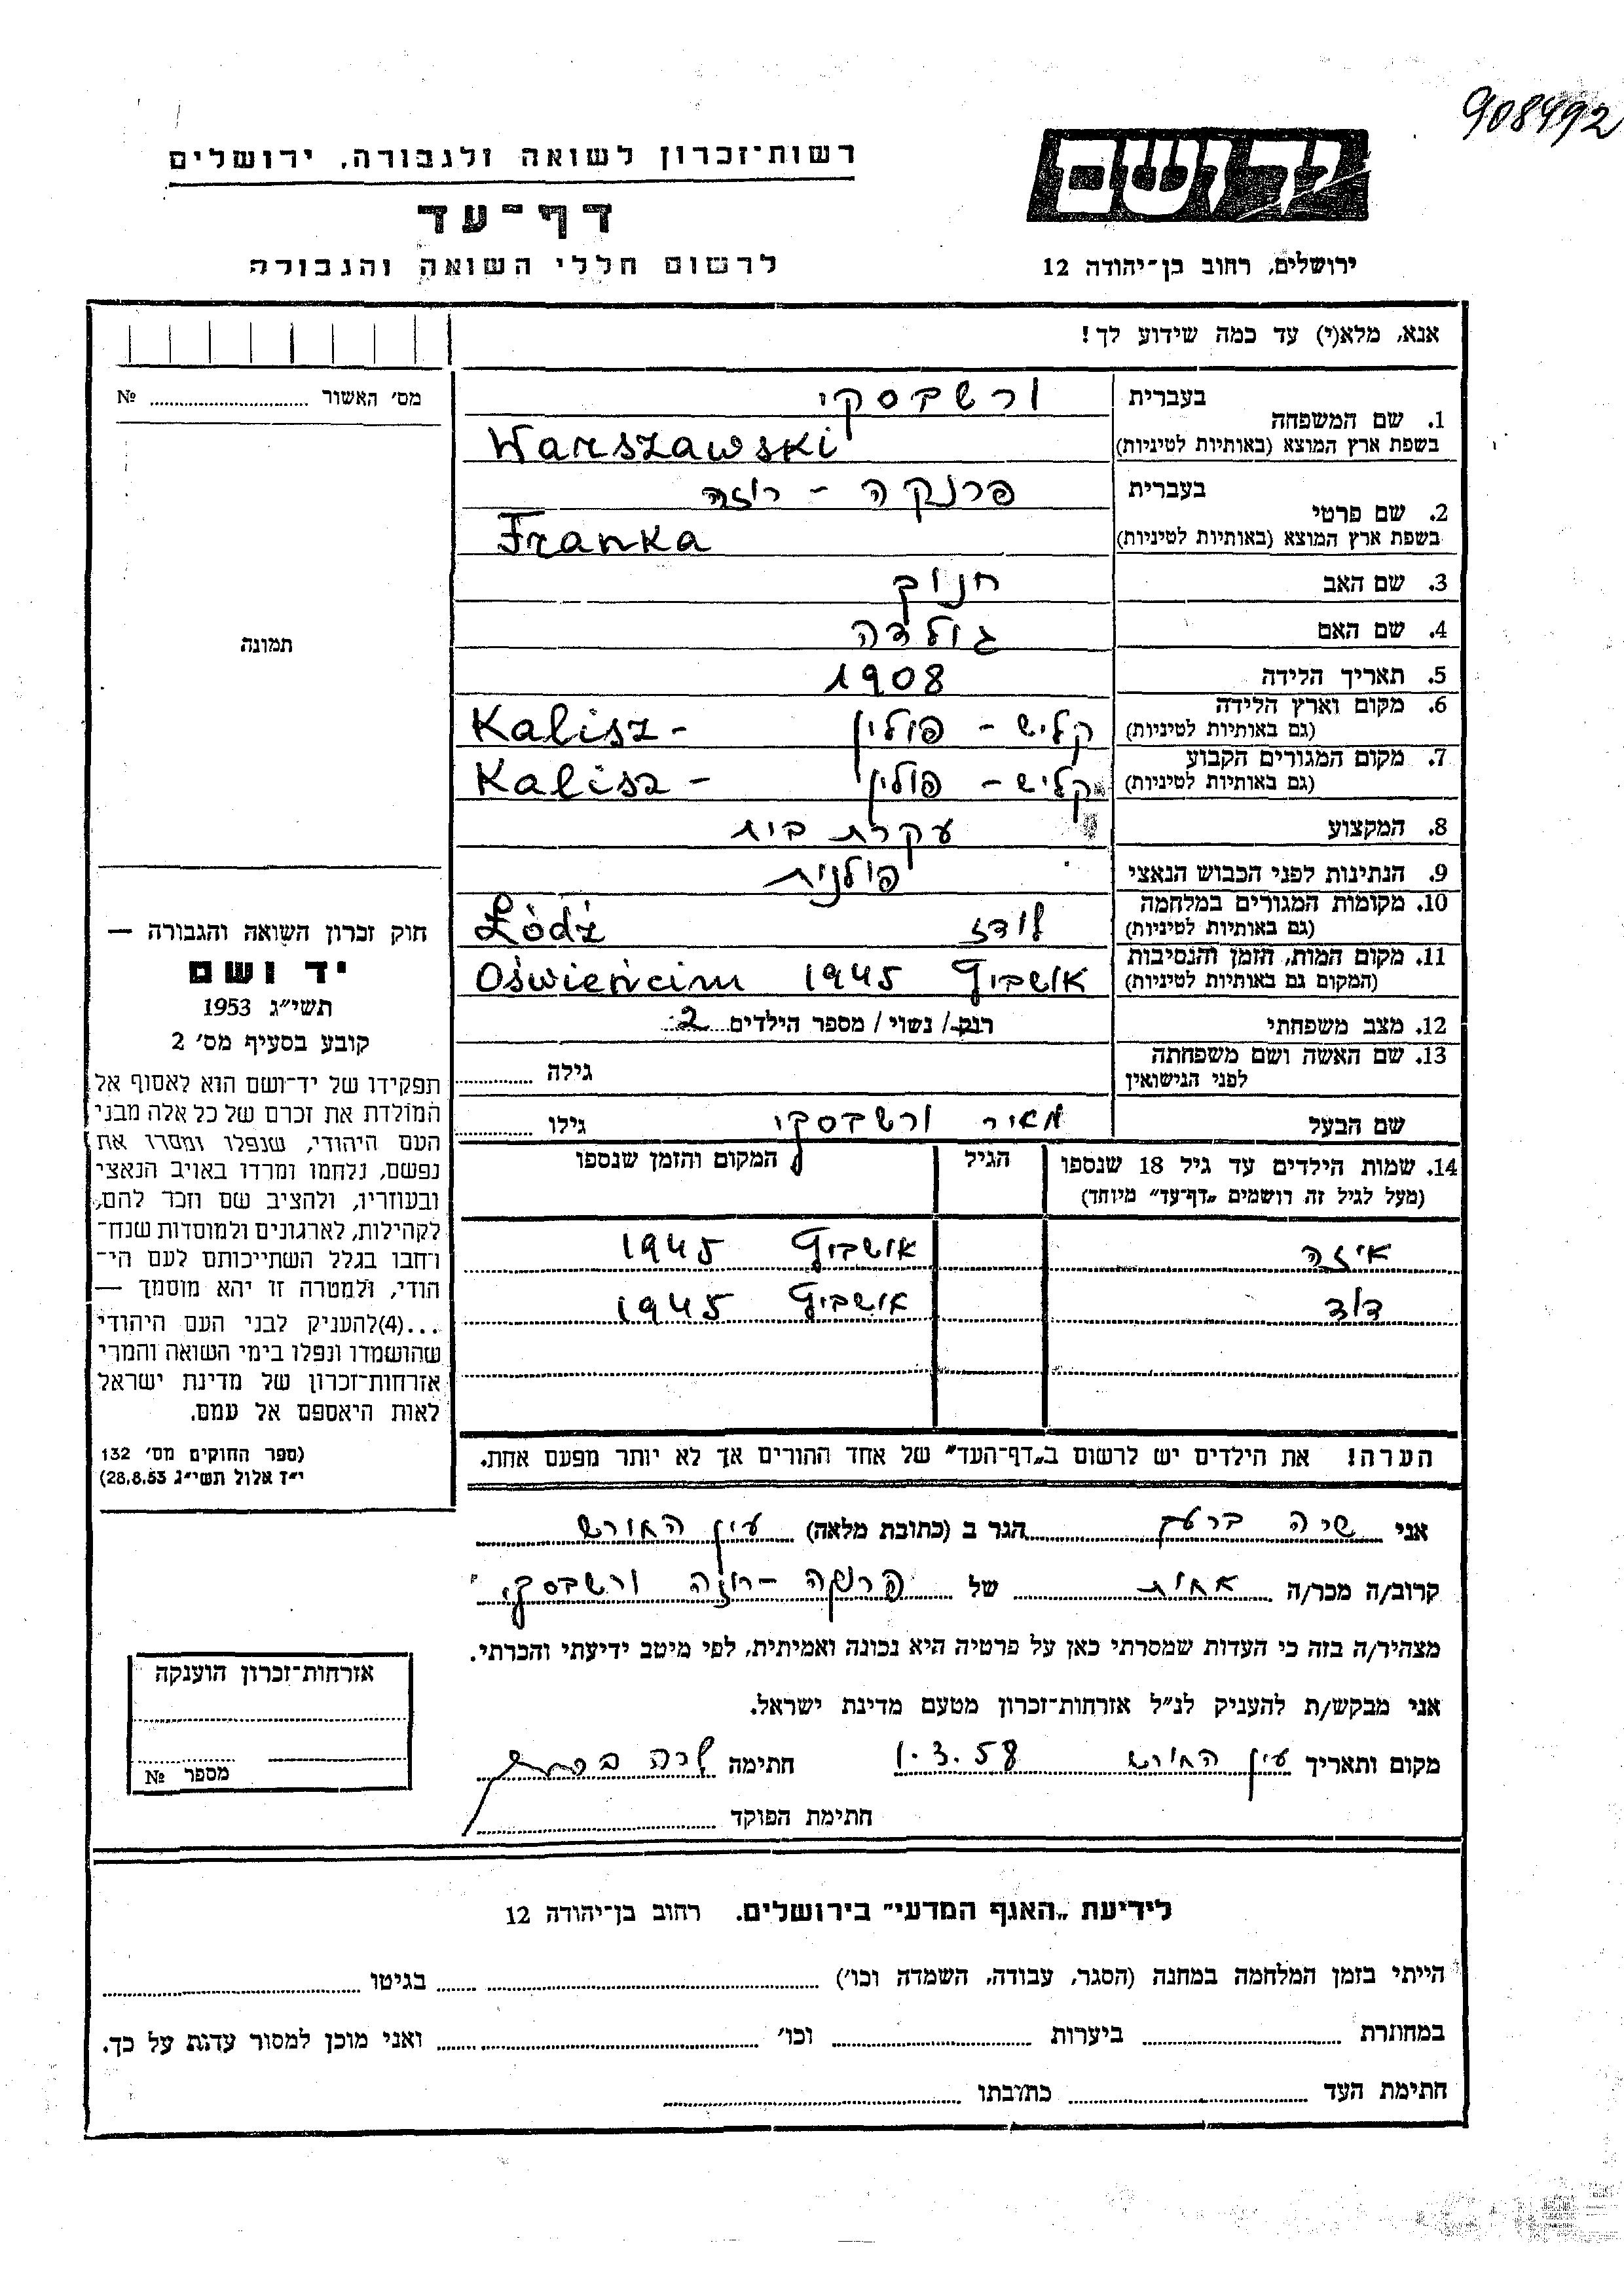 908492
רשות־זכרון לשואה ולגבורה, ירושלים
דף־עד
לרשום חללי השואה והגבורה
ידושם
ירושלים, רחוב בן־יהודה 12
אנא, מלא(י) עד כמה שידוע לך!
מס׳ האשור № 
1. שם המשפחה
בעברית ורשבסקי
בשפת ארץ המוצא (באותיות לטיניות) Warszawski
2. שם פרטי
בעברית פרנקה - רוזה
בשפת ארץ המוצא (באותיות לטיניות) Franka
3. שם האב חנוך
4. שם האם גולדה
5. תאריך הלידה 1908
6. מקום וארץ הלידה
(גם באותיות לטיניות) קליש - פולין Kalisz -
7. מקום המגורים הקבוע
(גם באותיות לטיניות) קליש - פולין Kalisz -
8. המקצוע עקרת בית
9. הנתינות לפני הכבוש הנאצי פולנית
10. מקומות המגורים במלחמה
(גם באותיות לטיניות) לודז Łòdź
11. מקום המות, הזמן והנסיבות
(המקום גם באותיות לטיניות) אושביץ 1945 Oświeńcim
12. מצב משפחתי רוק / נשוי / מספר הילדים 2
13. שם האשה ושם משפחתה
לפני הנישואין גילה
שם הבעל מאיר ורשבסקי גילו
14. שמות הילדים עד גיל 18 שנספו הגיל המקום והזמן שנספו
(מעל לגיל זה רושמים „דף־עד” מיוחד)
איזה אושביץ 1945
דוד אושביץ 1945
הערה! את הילדים יש לרשום ב„דף־העד” של אחד ההורים אך לא יותר מפעם אחת.
תמונה
חוק זכרון השואה והגבורה —
יד ושם
תשי״ג 1953
קובע בסעיף מס׳ 2
תפקידו של יד־ושם הוא לאסוף אל
המולדת את זכרם של כל אלה מבני
העם היהודי, שנפלו ומסרו את
נפשם, נלחמו ומרדו באויב הנאצי
ובעוזריו, ולהציב שם וזכר להם,
לקהילות, לארגונים ולמוסדות שנח־
רחבו בגלל השתייכותם לעם הי־
הודי, ולמטרה זו יהא מוסמך —
...(4)להעניק לבני העם היהודי
שהושמדו ונפלו בימי השואה והמרי
אזרחות־זכרון של מדינת ישראל
לאות היאספם אל עמם.
(ספר החוקים מס׳ 132
י״ז אלול תשי״ג 28.8.53)
אני הגר ב (כתובת מלאה) עין החורש
קרוב/ה מכר/ה אחות של פרנקה - רוזה ורשבסקי
מצהיר/ה בזה כי העדות שמסרתי כאן על פרטיה היא נכונה ואמיתית, לפי מיטב ידיעתי והכרתי.
אני מבקש/ת להעניק לנ״ל אזרחות־זכרון מטעם מדינת ישראל.
מקום ותאריך עין החורש 1.3.58 חתימה
חתימת הפוקד
אזרחות־זכרון הוענקה
מספר №
לידיעת „האגף המדעי” בירושלים. רחוב בן־יהודה 12
הייתי בזמן המלחמה במחנה (הסגר, עבודה, השמדה וכו׳) בגיטו
במחתרת ביערות וכו׳ ואני מוכן למסור עדות על כך.
חתימת העד כתובתו